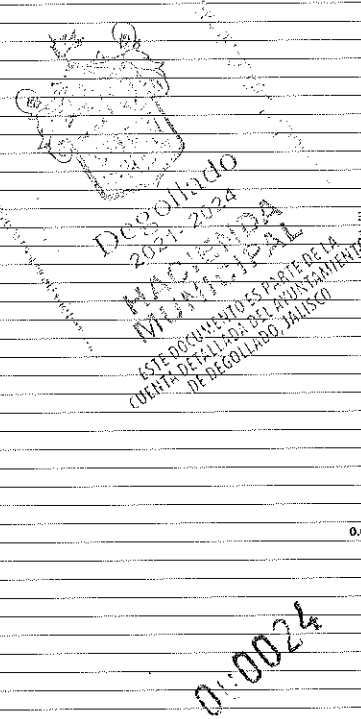 Degollado
2021-2024
HACIENDA
MUNICIPAL
ESTE DOCUMENTO ES PARTE DE LA
CUENTA DETALLADA DEL AYUNTAMIENTO
DE DEGOLLADO, JALISCO
0.
000024